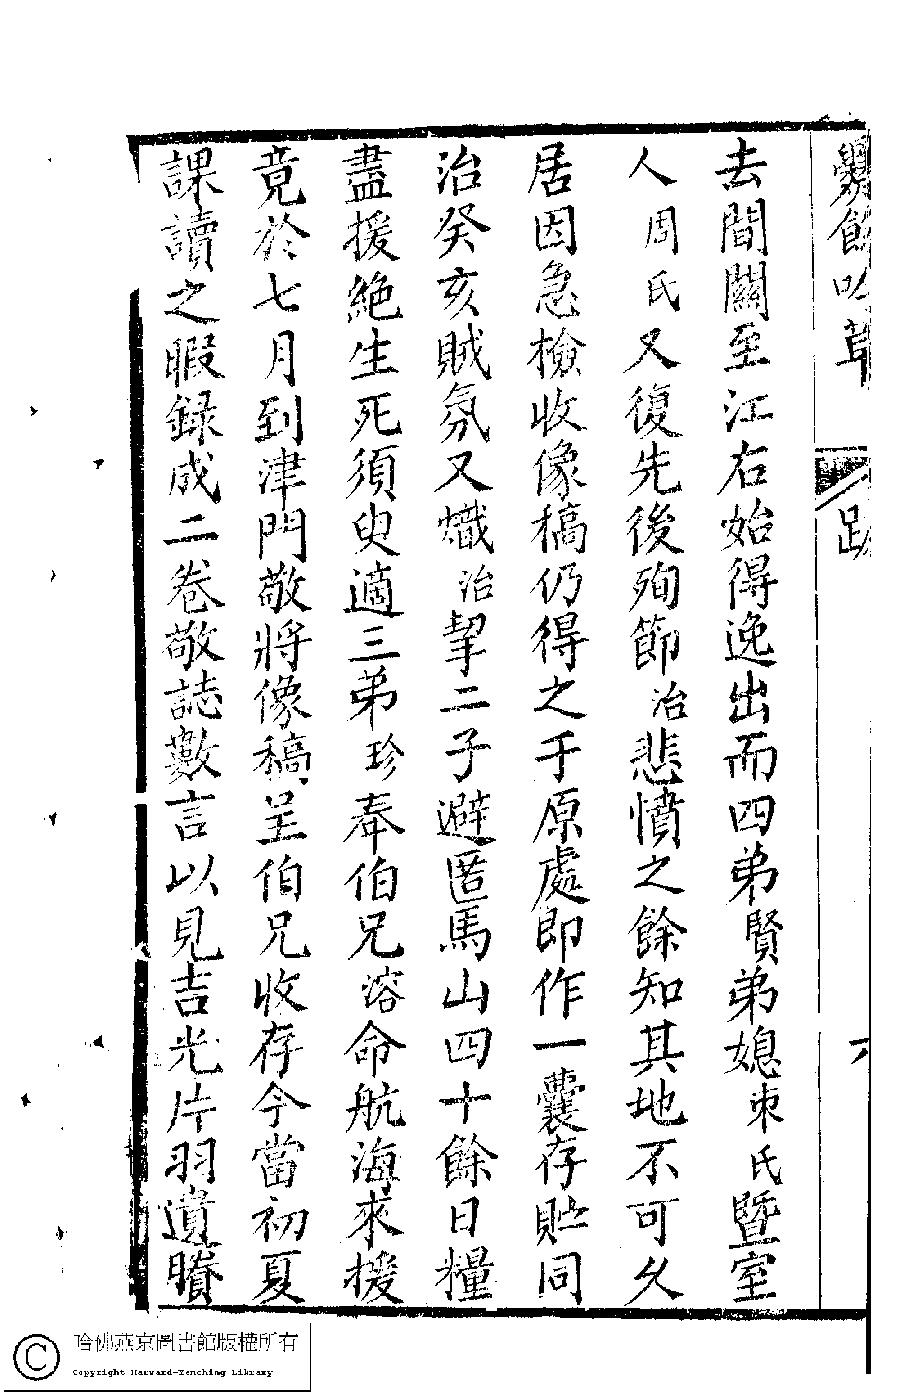 爨餘吟草
跋
六
去間關至江右始得逸出而四弟賢弟媳朿氏暨室
人周氏又復先後殉節治悲憤之餘知其地不可久
居因急檢收像槁仍得之于原處即作一囊存貯同
治癸亥賊氛又熾治挈二子避匿馬山四十餘日糧
盡援絶生死須臾適三弟珍奉伯兄溶命航海來援
竟於七月到津門敬將像稿呈伯兄收存今當初夏
課讀之暇録成二卷敬誌數言以見吉光片羽遺賸
哈佛燕京圖書館版權所有
Copyright Harvard-Yenching Library